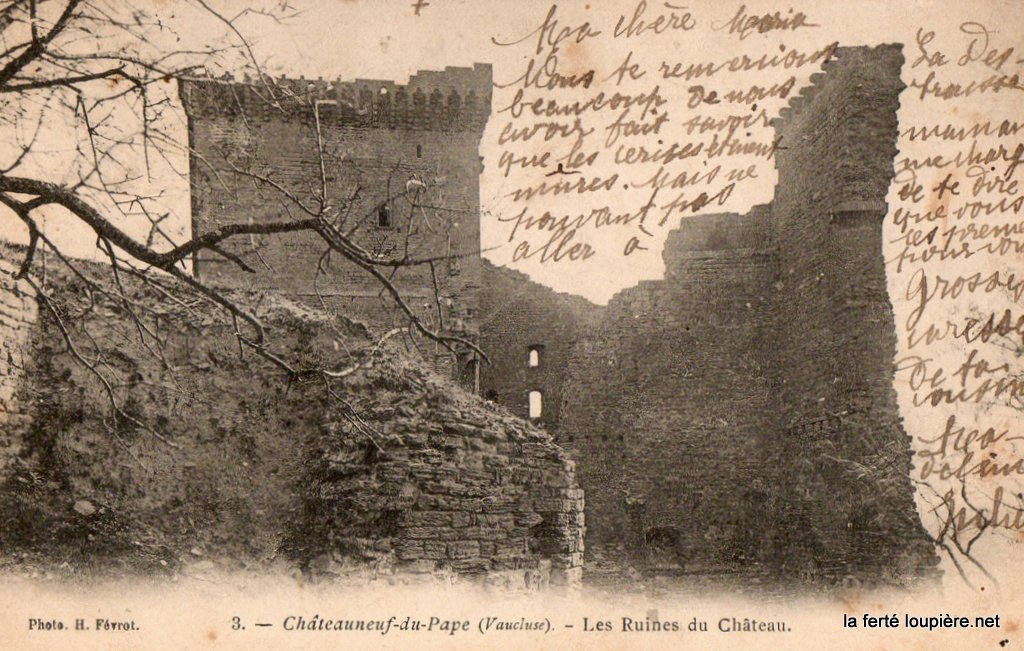 Ma chère Maria
Nous te remercions
beaucoup de nous
avoir fait savoir
que les cerises étaient
mûres. Mais ne
pouvant pas
aller à
La Des-
trausse
maman
me charg
de te dire
que vous
les preme
pour vou
Grosse
caresse
de ta
cousin
Photo. H. Févrot.
3. — Châteauneuf-du-Pape (Vaucluse). - Les Ruines du Château.
la ferté loupière.net